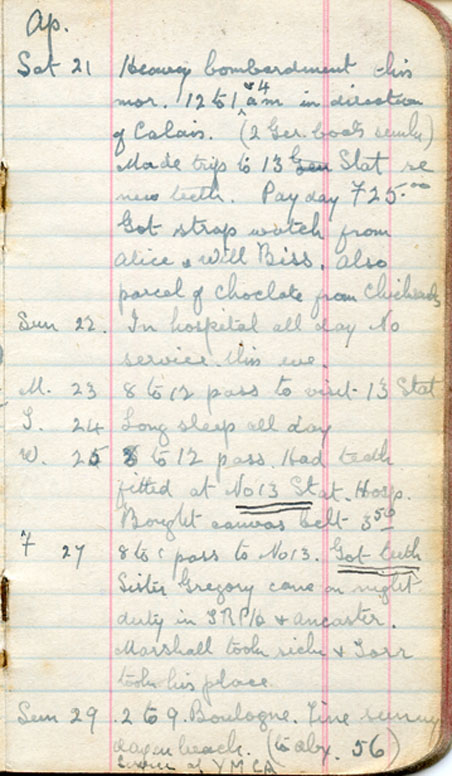 Ap.
Sat 21 Heavy bombardment this
mor. 12 to 1 & 4 am in direction
of Calais. (2 Ger. boats sunk)
Made trips to 13 Gen Stat re
new teeth. Pay day F 25.00
Got strap watch from
Alice & Will Biss. Also
parcel of choclate from
Sun 22. In hospital all day No
service this eve.
M. 23 8 to 12 pass to visit 13 Stat
T. 24 Long sleep all day
W. 25 8 to 12 pass. Had teeth
fitted at No 13 Stat. Hosp.
Bought canvas belt 3.50
F 27 8 to 1 pass to No 13. Got teeth
Sister Gregory came on night
duty in & Ancaster.
Marshall took sick & Torr
took his place.
Sun 29 2 to 9. Boulogne. Fine sunny
day on beach. (to 56)
at YMCA